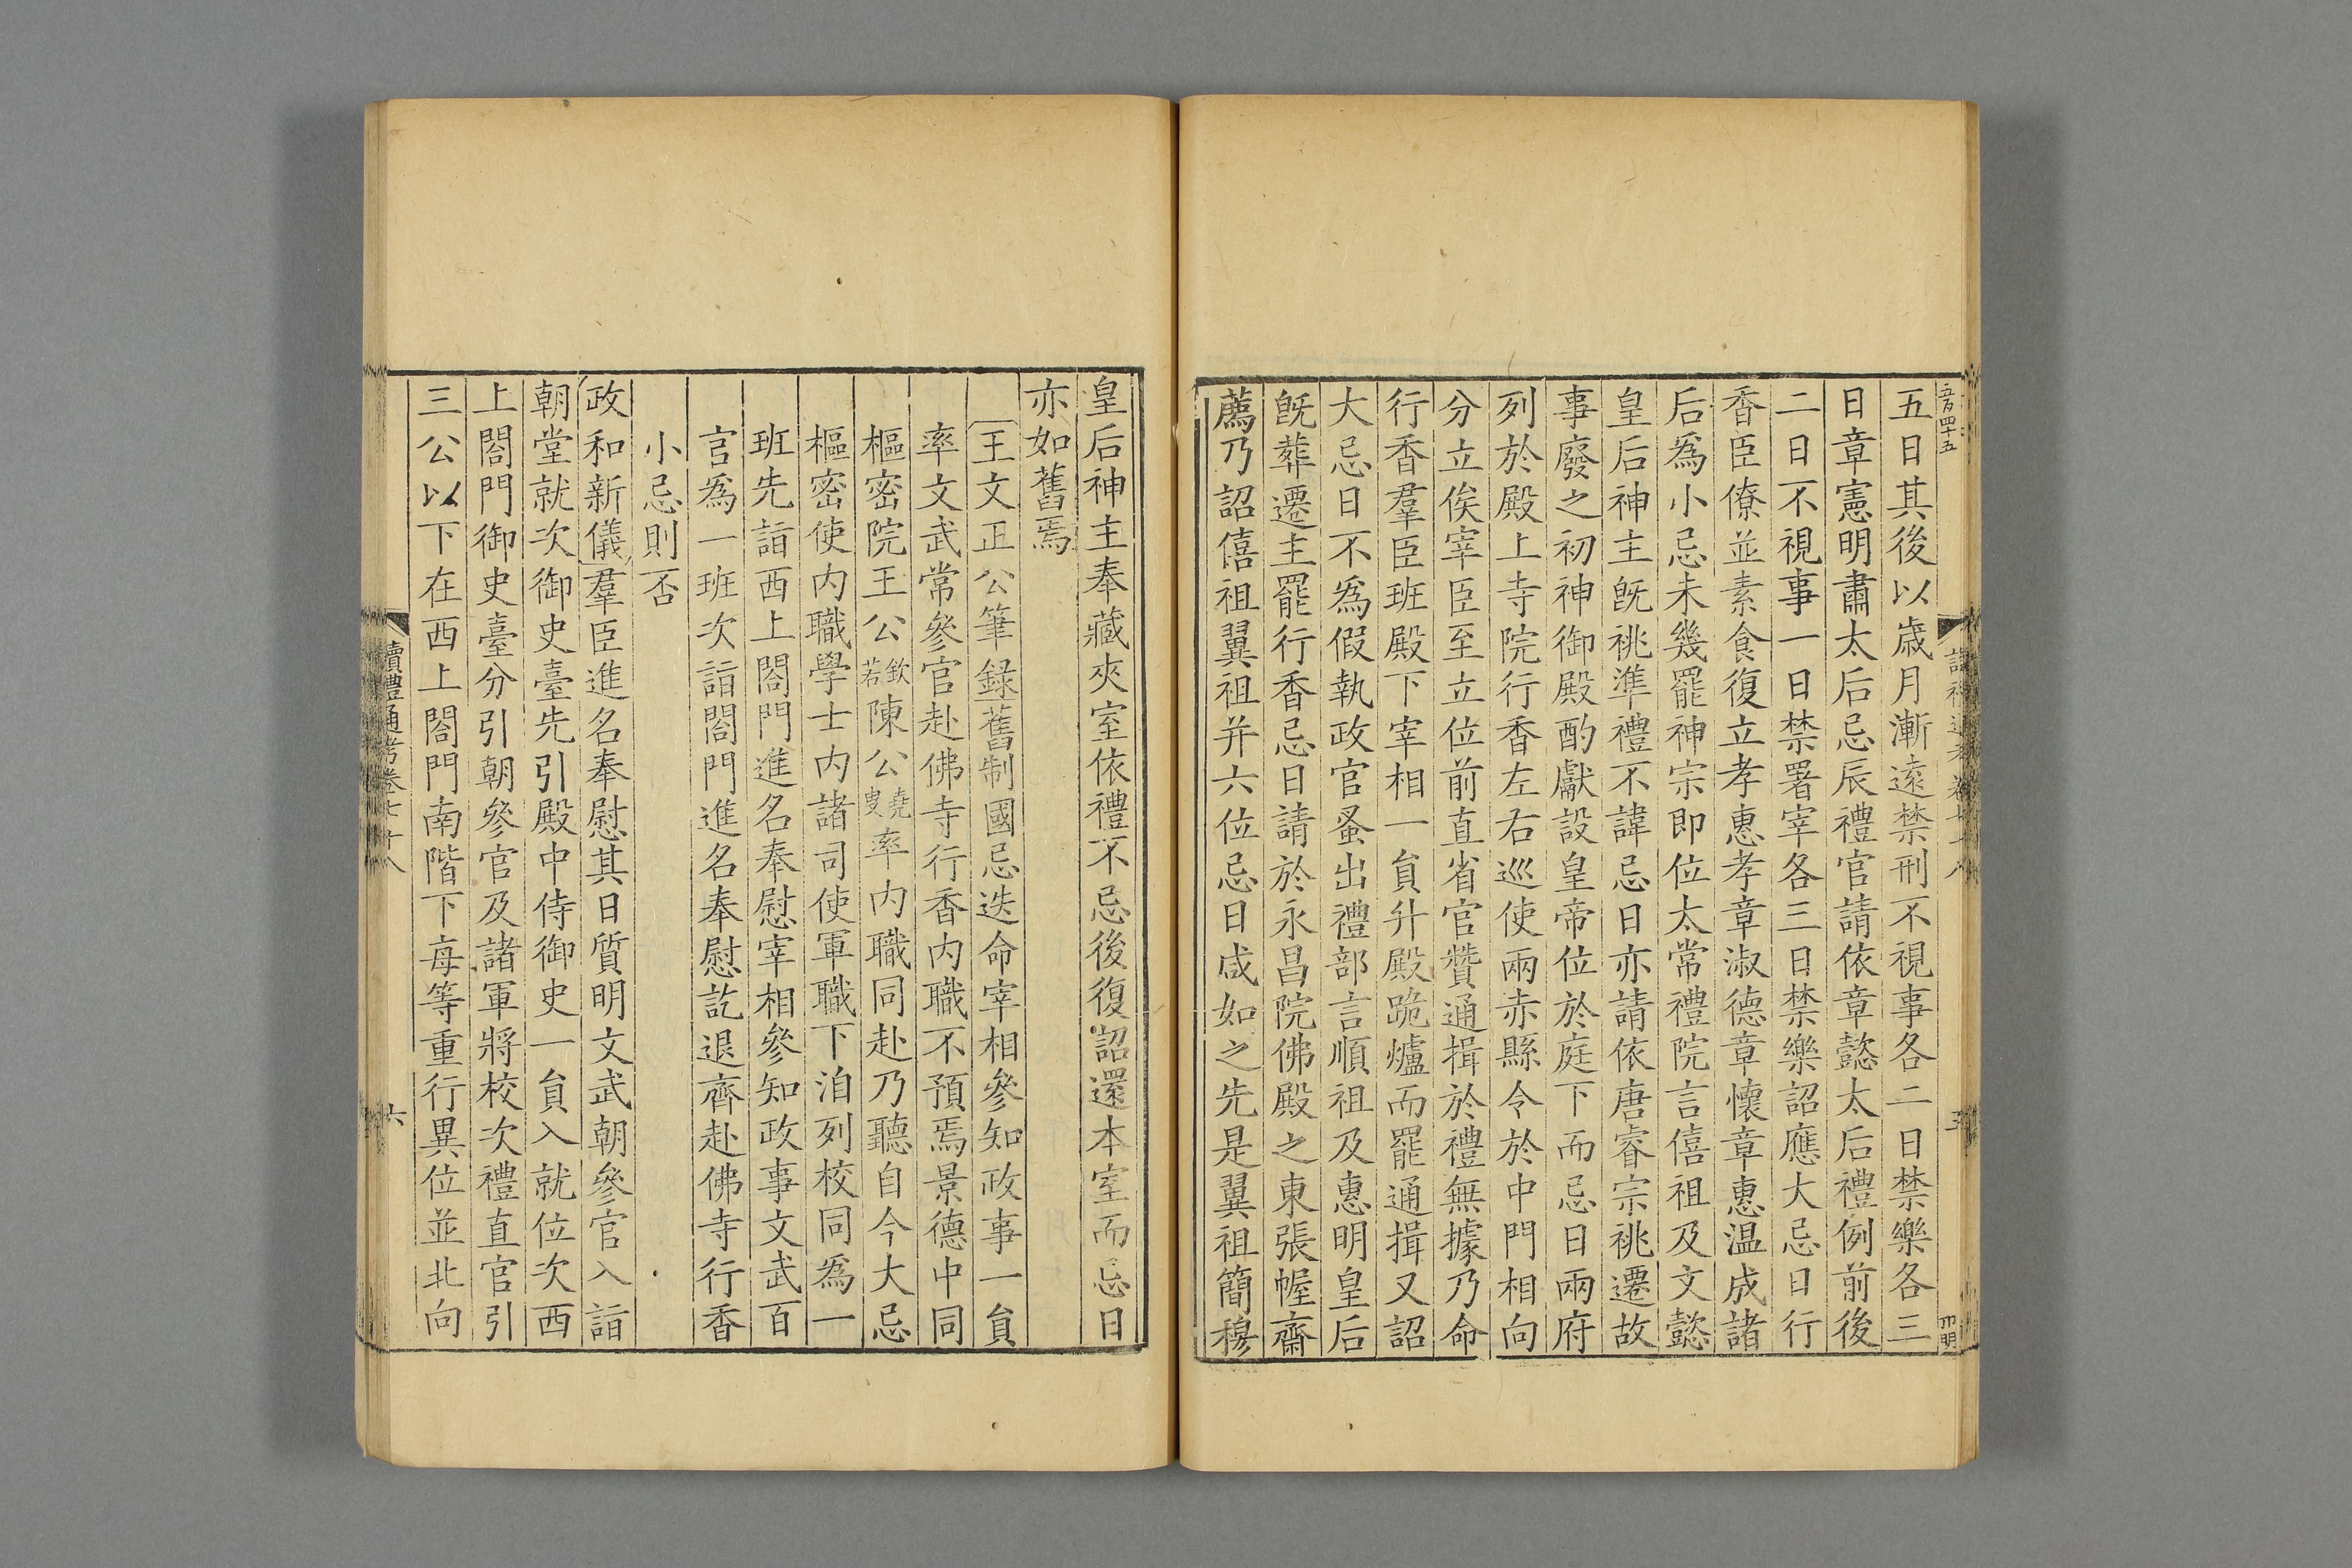 五百四十五
五日其後以歲月漸遠禁刑不視事各二日禁樂各三
日章憲明肅太后忌辰禮官請依章懿太后禮例前後
二日不視事一日禁署宰各三日禁樂詔應大忌日行
香臣僚並素食復立孝惠孝章淑德章懷章惠温成諸
后爲小忌未幾罷神宗即位太常禮院言僖祖及文懿
皇后神主旣祧準禮不諱忌日亦請依唐睿宗祧遷故
事廢之初神御殿酌獻設皇帝位於庭下而忌日兩府
列於殿上寺院行香左右巡使兩赤縣令於中門相向
分立俟宰臣至立位前直省官贊通揖於禮無據乃命
行香羣臣班殿下宰相一貟升殿跪爐而罷通揖又詔
大忌日不爲假執政官蚤出禮部言順祖及惠明皇后
旣葬遷主罷行香忌日請於永昌院佛殿之東張幄齋
薦乃詔僖祖翼祖并六位忌日咸如之先是翼祖簡穆
皇后神主奉藏夾室依禮不忌後復詔還本室而忌日
亦如舊焉
王文正公筆錄舊制國忌迭命宰相參知政事一貟
率文武常參官赴佛寺行香内職不預焉景德中同
樞密院王公欽若陳公堯叟率内職同赴乃聽自今大忌
樞密使内職學士内諸司使軍職下洎列校同爲一
班先詣西上閤門進名奉慰宰相參知政事文武百
官爲一班次詣閤門進名奉慰訖退齊赴佛寺行香
小忌則否
政和新儀羣臣進名奉慰其日質明文武朝參官入詣
朝堂就次御史臺先引殿中侍御史一貟入就位次西
上閤門御史臺分引朝參官及諸軍將校次禮直官引
三公以下在西上閤門南階下每等重行異位並北向
讀禮通考卷七十八
六